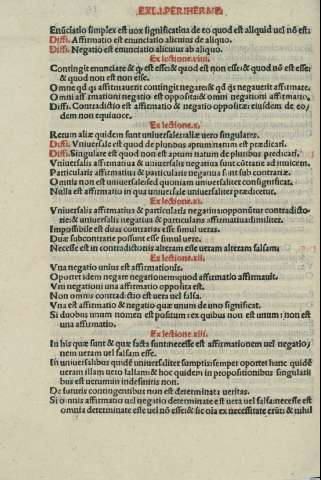 EX LI. PERIHERME.
Enūciatio simplex est uox significatiua de eo quod est aliquid uel nō est.
Diffi. Affirmatio est enunciatio alicuius de aliquo.
Diffi. Negatio est enunciatio alicuius ab aliquo.
Ex lectione.viiii.
Contingit enunciare & ꝙ est esse: & quod est non esse: & quod nō est esse
& quod non est non esse.
Omne qđ qs affirmauerit contingit negare: & qđ qs negauerit affirmare.
Omni affirmationi negatio est opposita: & omni negationi affirmatio.
Diffi. Contradictio est affirmatio & negatio oppositæ: eiusdem de eo,
dem non equiuoce.
Ex lectione.x.
Rerum aliæ quidem sunt uniuersales: aliæ uero singulares.
Diffi. Vniuersale est quod de pluribus aptum natum est prædicari.
Diffi. Singulare est quod non est aptum natum de pluribus prædicari.
Vniuersalis affirmatiua & uniuersalis negatiua sunt cōtrarie adinuicem.
Particularis affirmatiua & particularis negatiua sunt subcontrariæ.
Omnis non est uniuersale: sed quoniam uniuersaliter consignificat.
Nulla est affirmatio in qua uniuersale uniuersaliter prædicetur.
Ex lectione.xi.
Vniuersalis affirmatiua & particularis negatiua: opponūtur contradicto
rie: & uniuersalis negatiua & particularis affirmatiua: similiter.
Impossibile est duas contrarias esse simul ueras.
Duæ subcontrarie possunt esse simul ueræ.
Necesse est in contradictoriis alteram esse ueram alteram falsam.
Ex lectione.xii.
Vna negatio unius est affirmationis.
Oportet idem negare negationem: quod affirmatio affirmauit.
Vni negationi una affirmatio opposita est.
Non omnis contradictio est uera uel falsa.
Vna est affirmatio & negatio quæ unum de uno significat.
Si duobus unum nomen est positum: ex quibus non est unum: non est
una affirmatio.
Ex lectione.xiii.
In his quæ sunt & quæ facta sunt: necesse est affirmationem uel negatio,
nem ueram uel falsam esse.
In uniuersalibus quidē uniuersaliter sumptis: semper oportet hanc quidē
ueram illam uero falsam: & hoc quidem in propositionibus singularit
bus est uerum: in indefinitis non.
De futuris contingentibus non est determinata ueritas.
Si omnis affirmatio uel negatio determinate est uera uel falsa: necesse est
omnia determinate esse uel nō esse: & sic oīa ex necessitate erūt: & nihil